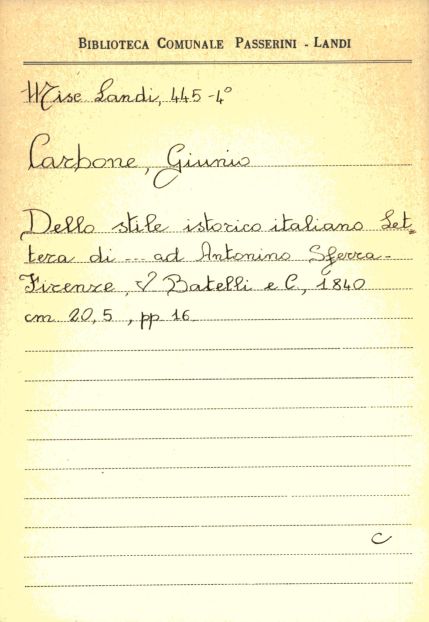 BIBLIOTECA COMUNALE PASSERINI - LANDI
Misc Landi, 445-4°
Carbone, Giunio
Dello stile istorico italiano Let-
tera di --- ad Antonino Sferra-
Firenze, V Batelli e C, 1840
cm 20,5, pp 16
C